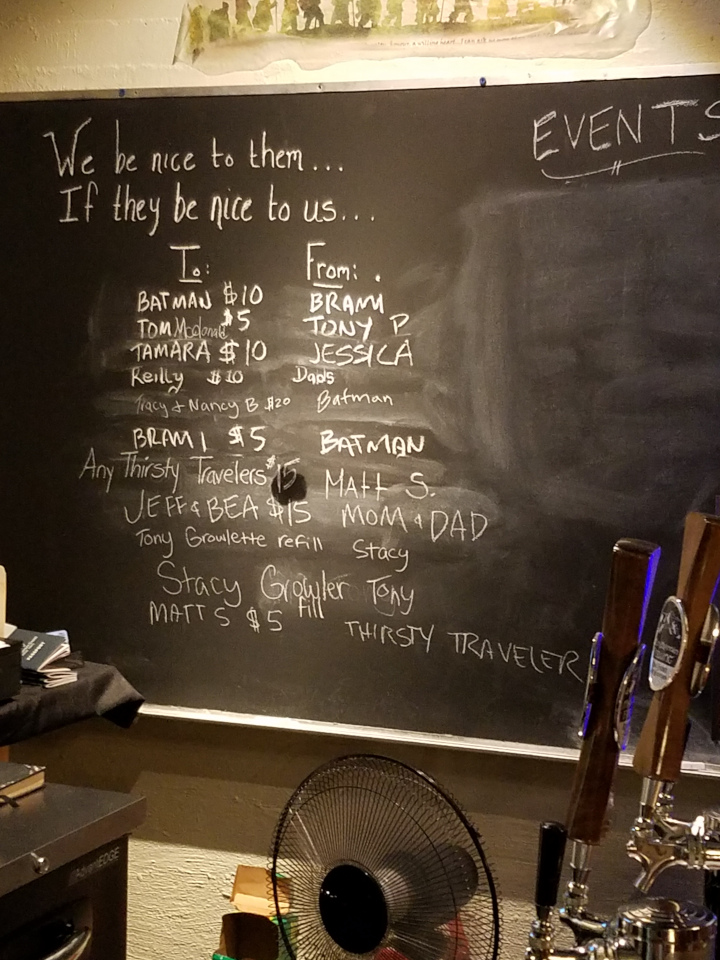 We be nice to them...
If they be nice to us...
EVENTS
To: From:
BATMAN $10 BRAM
TOM Mcdonald $5 TONY P
TAMARA $10 JESSICA
Reilly $10 Dads
Tracy & Nancy B $20 Batman
BRAM $5 BATMAN
Any Thirsty Travelers $15 Matt S.
JEFF & BEA $15 MOM & DAD
Tony Growlette refill Stacy
Stacy Growler fill Tony
MATT S $5 THIRSTY TRAVELER